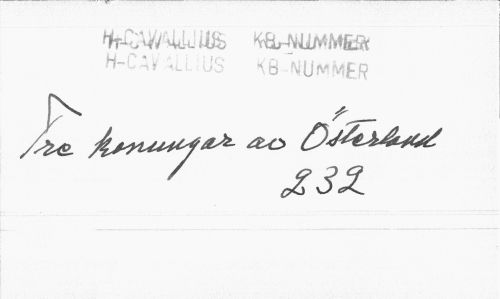 H-CAVALLIUS KB-NUMMER
H-CAVALLIUS KB-NUMMER
Tre konungar av Österland
232